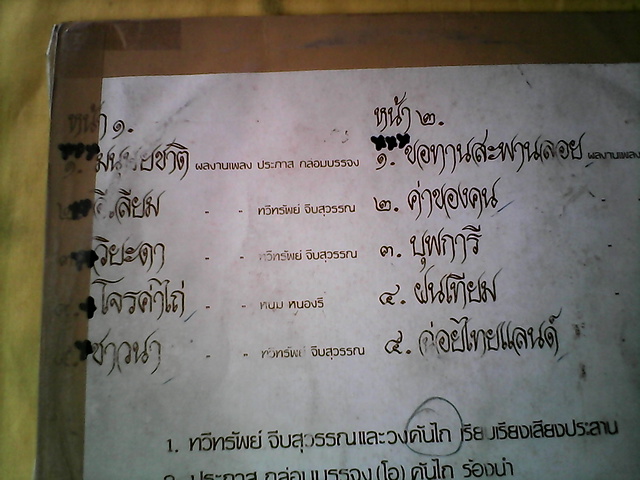 หน้า ๑.
มนุษยชาติ ผลงานเพลง ประภาส กล่อมบรรจง
เลียม - - ทวีทรัพย์ จีบสุวรรณ
วิยะดา - - ทวีทรัพย์ จีบสุวรรณ
โจรค่าไถ่ - - หนุ่ม หนองรี
ชาวนา - - ทวีทรัพย์ จีบสุวรรณ
หน้า ๒.
๑. ขอทานสะพานลอย ผลงานเพลง
๒. ค่าของคน
๓. บุพการี
๔. ฝนเทียม
๕. ค่อยไทยแลนด์
1. ทวีทรัพย์ จีบสุวรรณและวงคันไถ เรียบเรียงเสียงประสาน
2. ประภาส กล่อมบรรจง (โอ) คันไถ ร้องนำ